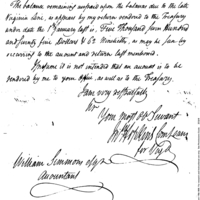 The balance remaining unpaid upon the balances due to the late
Virginia Line, as appears by my return rendered to the Treasury
under date the 1st January last is, Five Thousand four Hundred
and Twenty five Dollars & 62 Hundredths, as may be seen by
recurring to the amount and return last mentioned.
I presume it is not intended that an account is to be
rendered by me to your Office, as well as to the Treasury.
I am very respectfully
Sir
Your most Ob Servant
William Simmons Esqr
Accountant